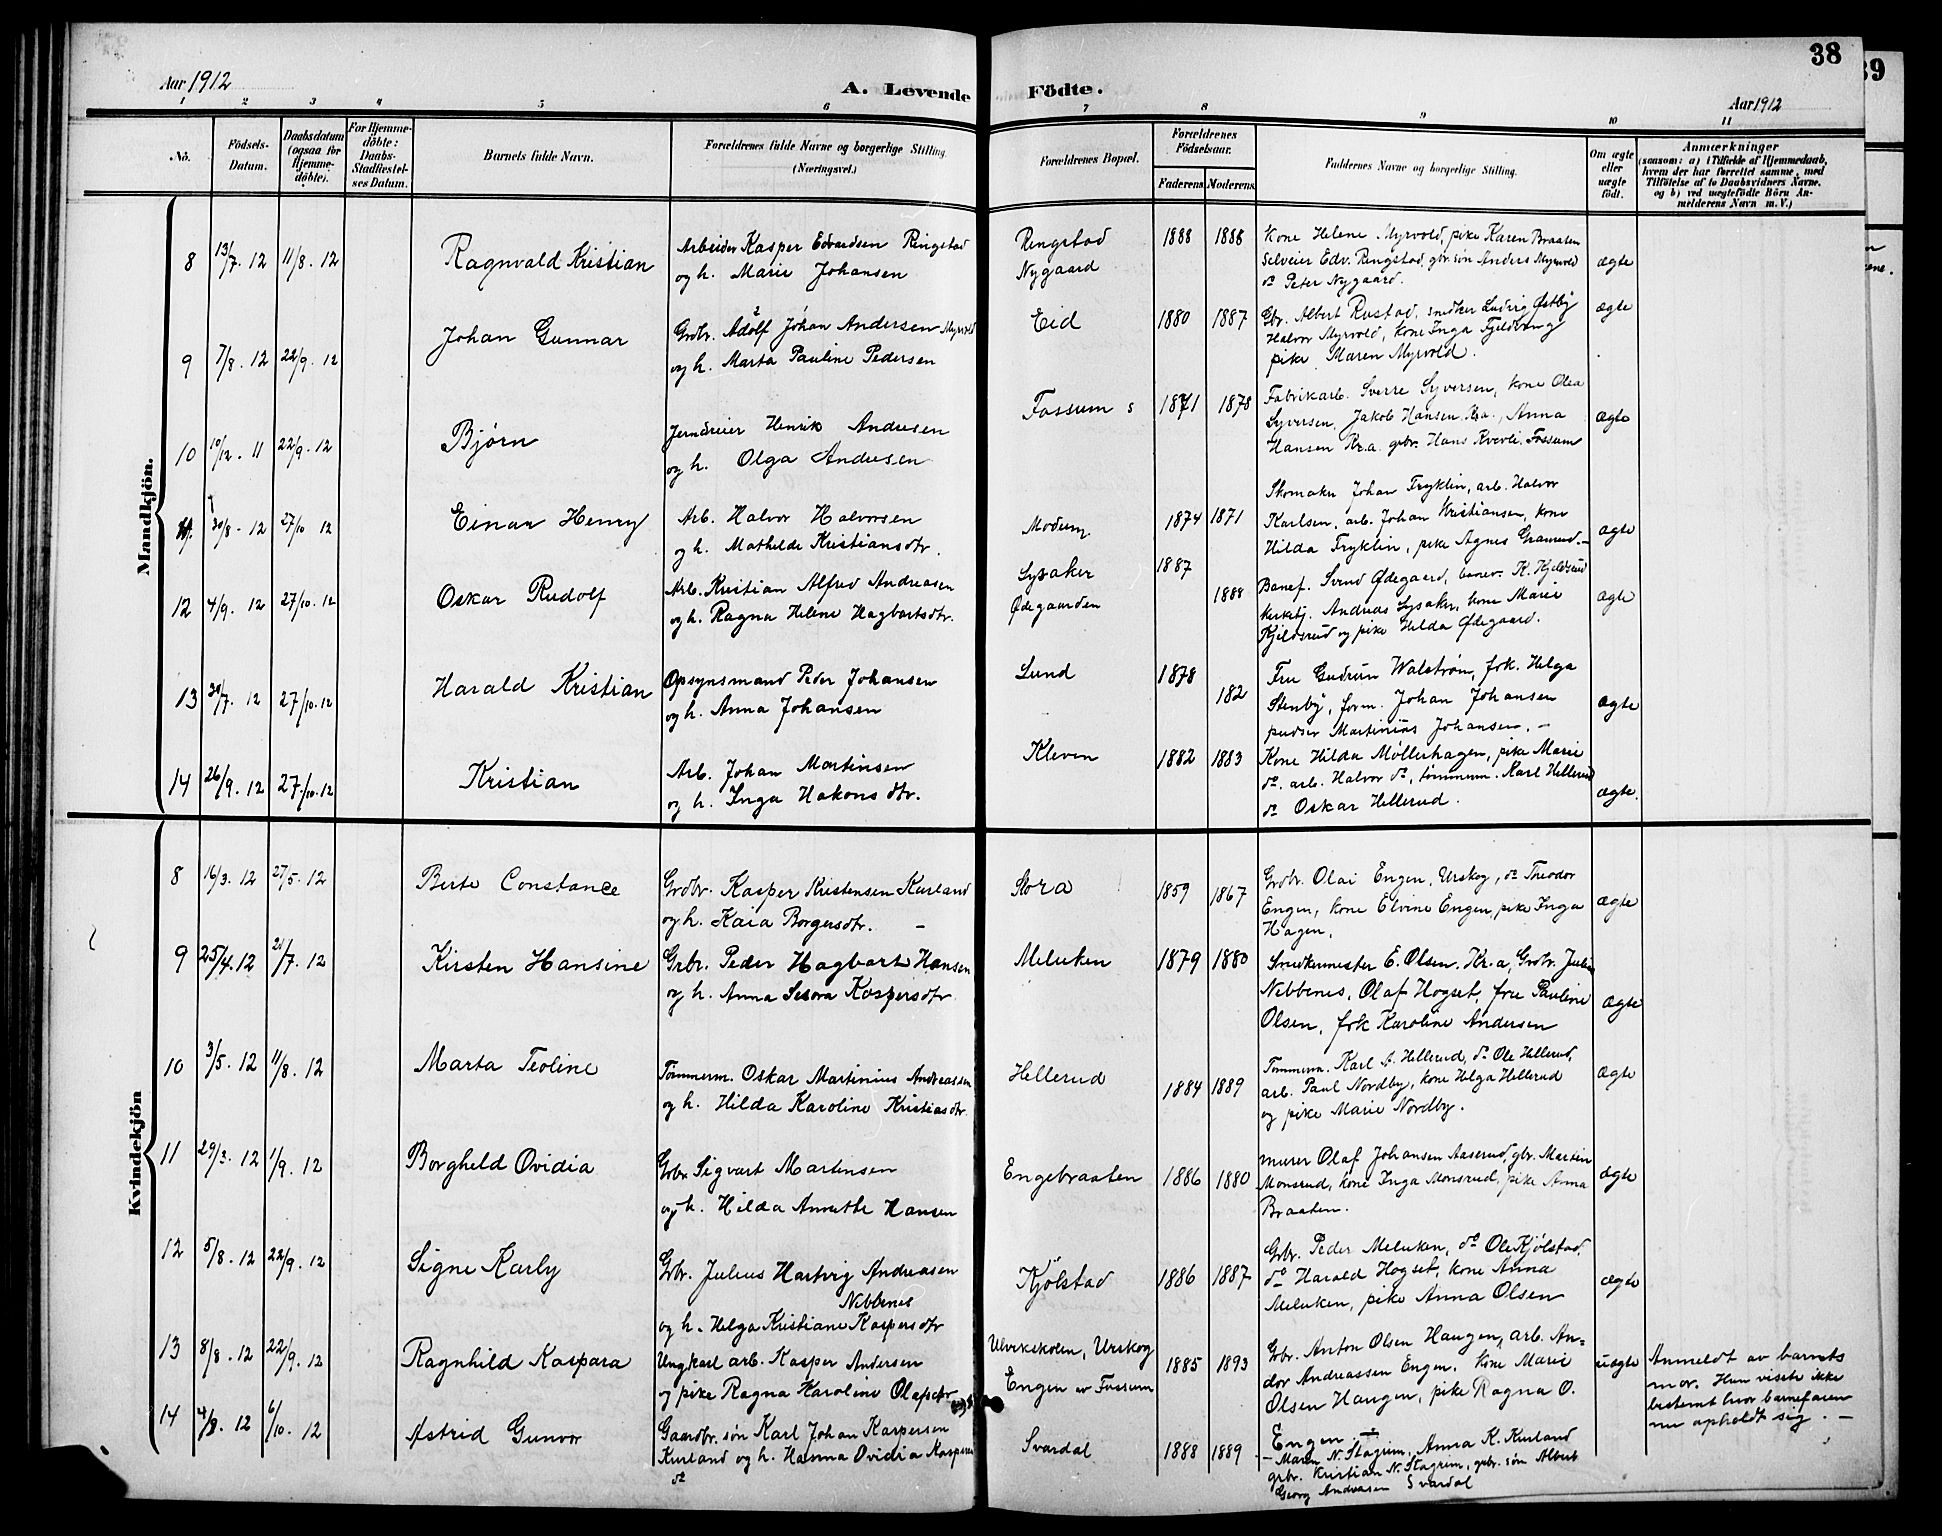 Aar 1912
A. Levende Födte.
38
Aar 1912
39
1 2 3 4 5 6 7 8 9 10 11
No.
Födsels-
Datum.
Daabsdatum
(ogsaa for
Hjemme-
döbte).
For Hjemme-
döbte:
Daabs-
Stadfæstel-
ses Datum.
Barnets fulde Navn.
Forældrenes fulde Navne og borgerlige Stilling
(Næringsvei.)
Forældrenes Bopæl.
Forældrenes
Födselsaar.
Faderens.
Moderens.
Faddernes Navne og borgerlige Stilling.
Om ægte
eller
uægte
födt.
Anmærkninger
(saasom: a) i Tilfælde af Hjemmedaab,
hvem der har forrettet samme, med
Tilföielse af to Daabsvidners Navne,
og b) ved uægtefödte Börn An-
melderens Navn m. V.)
Mandkjön.
8 13/7. 12 11/8. 12 Ragnvald Kristian
Arbeider Kasper Edvardsen Ringstad
og h. Marie Johansen
Ringstad
Nygaard
1888 1888
Kone Helene Myrvold, pike Karen Braaten
Selveier Edv. Ringstad, gbr. søn Anders Myrvold
do Peter Nygaard.
ægte
9 7/8. 12 22/9. 12 Johan Gunnar
Grdbr. Adolf Johan Andersen Myrvold
og h. Marta Pauline Pedersen
Eid
1880 1887
Gbr. Albert Rustad, snedker Ludvig Østby
Halvor Myrvold, kone Inga Fjeldbeng
pike Maren Myrvold.
ægte
10 10/12. 11 22/9. 12 Bjørn
Jerndreier Henrik Andresen
og h. Olga Andresen
Fossum s
1871 1878
Fabrikarb. Sverre Syversen, kone Olea
Syversen, Jakob Hansen Kra., Anna
Hansen Kr.a gbr. Hans Kverli. Fossum
ægte
11. 30/8. 12 27/10 12 Einar Henry
Arb. Halvor Halvorsen
og h. Mathilde Kristiansdtr.
Modum
1874 1871
Skomaker Johan Fryklin, arb. Halvor
Karlsen, arb. Johan Kristiansen, kone
Hilda Fryklin, pike Agnes Gramrud.-
ægte
12 4/9. 12 27/10. 12 Oskar Rudolf
Arb. Kristian Alfred Andreasen
og h. Ragna Helene Hagbartsdtr.
Lysaker
Ødegaarden
1887 1888
Banef. Svend Ødegaard, banev. K. Kjeldsrud
kirketj. Andreas Lysaker, kone Marie
Kjeldsrud og pike Hilda Ødegaard.
ægte
13 30/7. 12 27/10. 12 Harald Kristian
Opsynsmand Peder Johansen
og h. Anna Johansen
Lund
1878 182
Fru Gudrun Walstrøm, frk. Helga
Stenby, form. Johan Johansen
pudser Martinius Johansen. -
ægte
14 26/9. 12 27/10. 12 Kristian
Arb. Johan Martinsen
og h. Inga Hakonsdtr.
Kleven
1882 1883
Kone Hilda Møllerhagen, pike Marie
do. arb. Halvor do, tømmerm. Karl Hellerud
do Oskar Hellerud.
ægte.
Kvindekjön
8 16/3. 12 27/5. 12 Berte Constance
Grdbr. Kasper Kristensen Kurland
og h. Kaia Borgersdtr. -
Sora
1859 1867
Grdbr. Olai Engen, Urskog, do Theodor
Engen, kone Elvine Engen, pike Inga
Hagen.
ægte
9 25/4. 12 21/7. 12 Kirsten Hansine
Grbr. Peder Hagbart Hansen
og h. Anna Senora Kaspersdtr
Meluken
1879 1880
Snedkermester E. Olsen. Kr.a, Grdbr. Julius
Nebbenes, Olaf Hogset, fru Pauline
Olsen, frk Karoline Andersen
ægte
10 3/5. 12 11/8. 12 Marta Teoline
Tømmerm. Oskar Martinius Andreassen
og h. Hilda Karoline Kristiasdtr
Hellerud
1884 1889
Tømmerm. Karl A. Hellerud, do Ole Hellerud,
arb. Paul Nordby, kone Helga Hellerud
og pike Marie Nordby.
ægte
11 29/3. 12 1/9. 12 Borgheld Ovidia
Gbr. Sigvart Martinsen
og h. Hilda Annette Hansen
Engebraaten
1886 1880
murer Olaf Johansen Aaserud, gbr. Martin
Monsrud, kone Inga Monsrud, pike Anna
Braaten.
ægte
12 5/8. 12 22/9. 12 Signe Karly
Grbr. Julius Hartvig Andreasen
Nebbenes
og h. Helga Kristiane Kaspersdtr
Kjølstad
1886 1887
Grbr. Peder Meluken, do Ole Kjølstad,
do Harald Hogset, kone Anna
Meluken, pike Anna Olsen
ægte
13 8/8. 12 22/9. 12 Ragnhild Kaspara
Ungkarl arb. Kasper Andersen
og pike Ragna Karoline Olafsdtr
Ulvikskolen, Urskog
Engen av Fossum
1885 1893
Grbr. Anton Olsen Haugen, arb. An=
dor Andreassen Engen, kone Marie
Olsen Haugen, pike Ragna O.
Engen. -
uægte
Anmeldt av barnets
mor. Hun visste ikke
bestemt hvor barnefaren
nu opholdt sig. -
14 4/8. 12 6/10. 12 Astrid Gunvor
Gaardbr. søn Karl Johan Kaspersen
Kurland og h. Hanna Ovidia Kaspersen
do
Svardal
1888 1889
- Maren N. Stagrim, Anna K. Kurland
grbr. Kristian N. Stagrim, gbr. søn Albert
Georg Andreasen Svardal